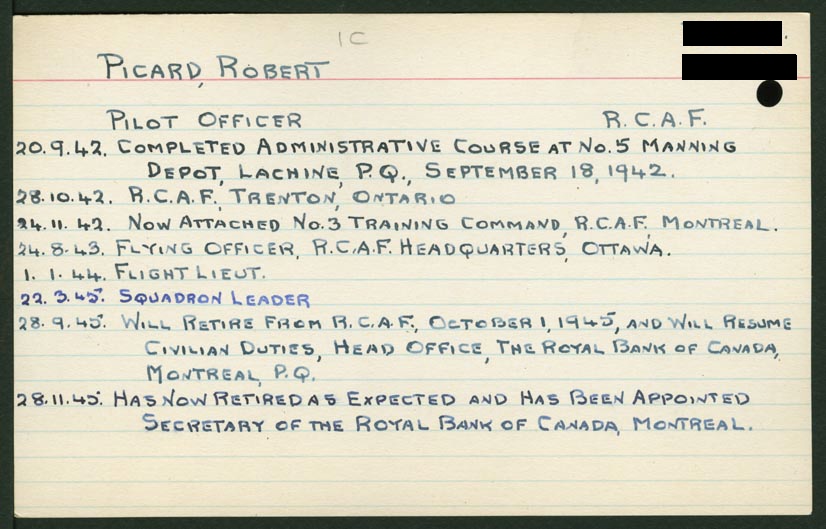 1C
PICARD, ROBERT
PILOT OFFICER R.C.A.F.
20.9.42. COMPLETED ADMINISTRATIVE COURSE AT NO.5 MANNING
DEPOT, LACHINE, P.Q., SEPTEMBER 18, 1942.
28.10.42. R.C.A.F., TRENTON, ONTARIO
24.11.42. NOW ATTACHED NO.3 TRAINING COMMAND, R.C.A.F., MONTREAL.
24.8.43. FLYING OFFICER, R.C.A.F. HEADQUARTERS, OTTAWA.
1.1.44. FLIGHT LIEUT.
22.3.45. SQUADRON LEADER
28.9.45. WILL RETIRE FROM R.C.A.F., OCTOBER 1, 1945, AND WILL RESUME
CIVILIAN DUTIES, HEAD OFFICE, THE ROYAL BANK OF CANADA,
MONTREAL, P.Q.
28.11.45. HAS NOW RETIRED AS EXPECTED AND HAS BEEN APPOINTED
SECRETARY OF THE ROYAL BANK OF CANADA, MONTREAL.